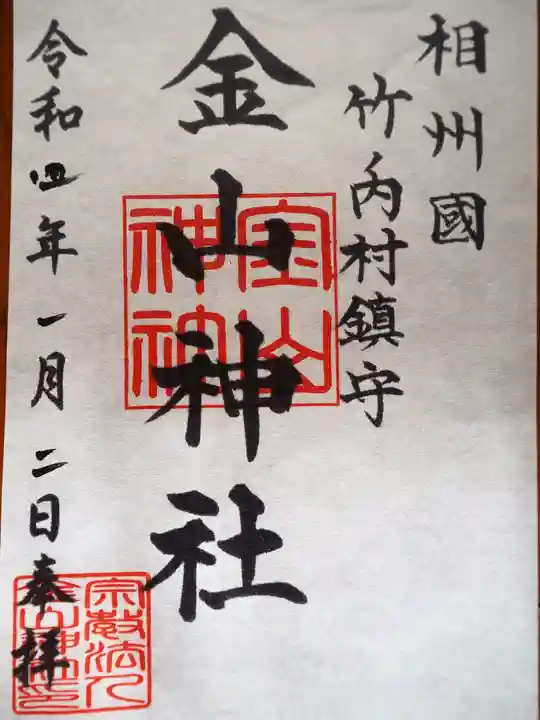 相州國
竹内村鎮守
金山神社
令和四年一月二日奉拝
宗教法人